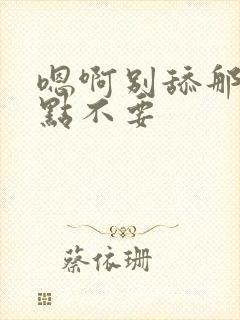 嗯啊别舔那
點不要
蔡依珊